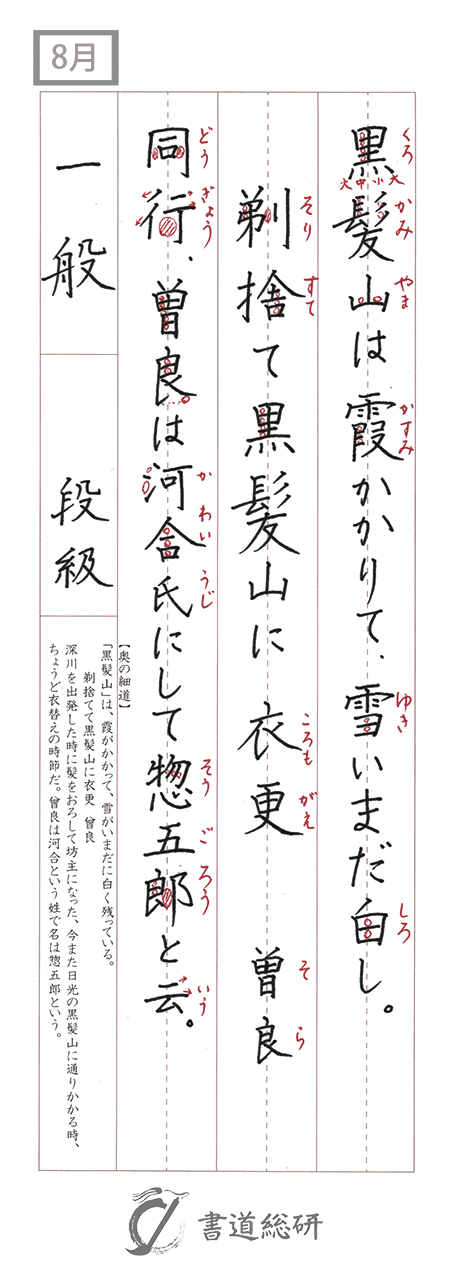 8月
黒髪山は霞かかりて、雪いまだ白し。
くろ かみ やま かすみ ゆき しろ
大 中 小 大
剃捨て黒髪山に 衣更 曽良
そり すて ころも がえ そ ら
同行、曽良は河合氏にして惣五郎と云。
どう ぎょう か わい うじ そう ご ろう いう
一般
段級
【奥の細道】
「黒髪山」は、霞がかかって、雪がいまだに白く残っている。
剃捨てて黒髪山に衣更 曽良
深川を出発した時に髪をおろして坊主になった、今また日光の黒髪山に通りかかる時、
ちょうど衣替えの時節だ。曽良は河合という姓で名は惣五郎という。
書道総研